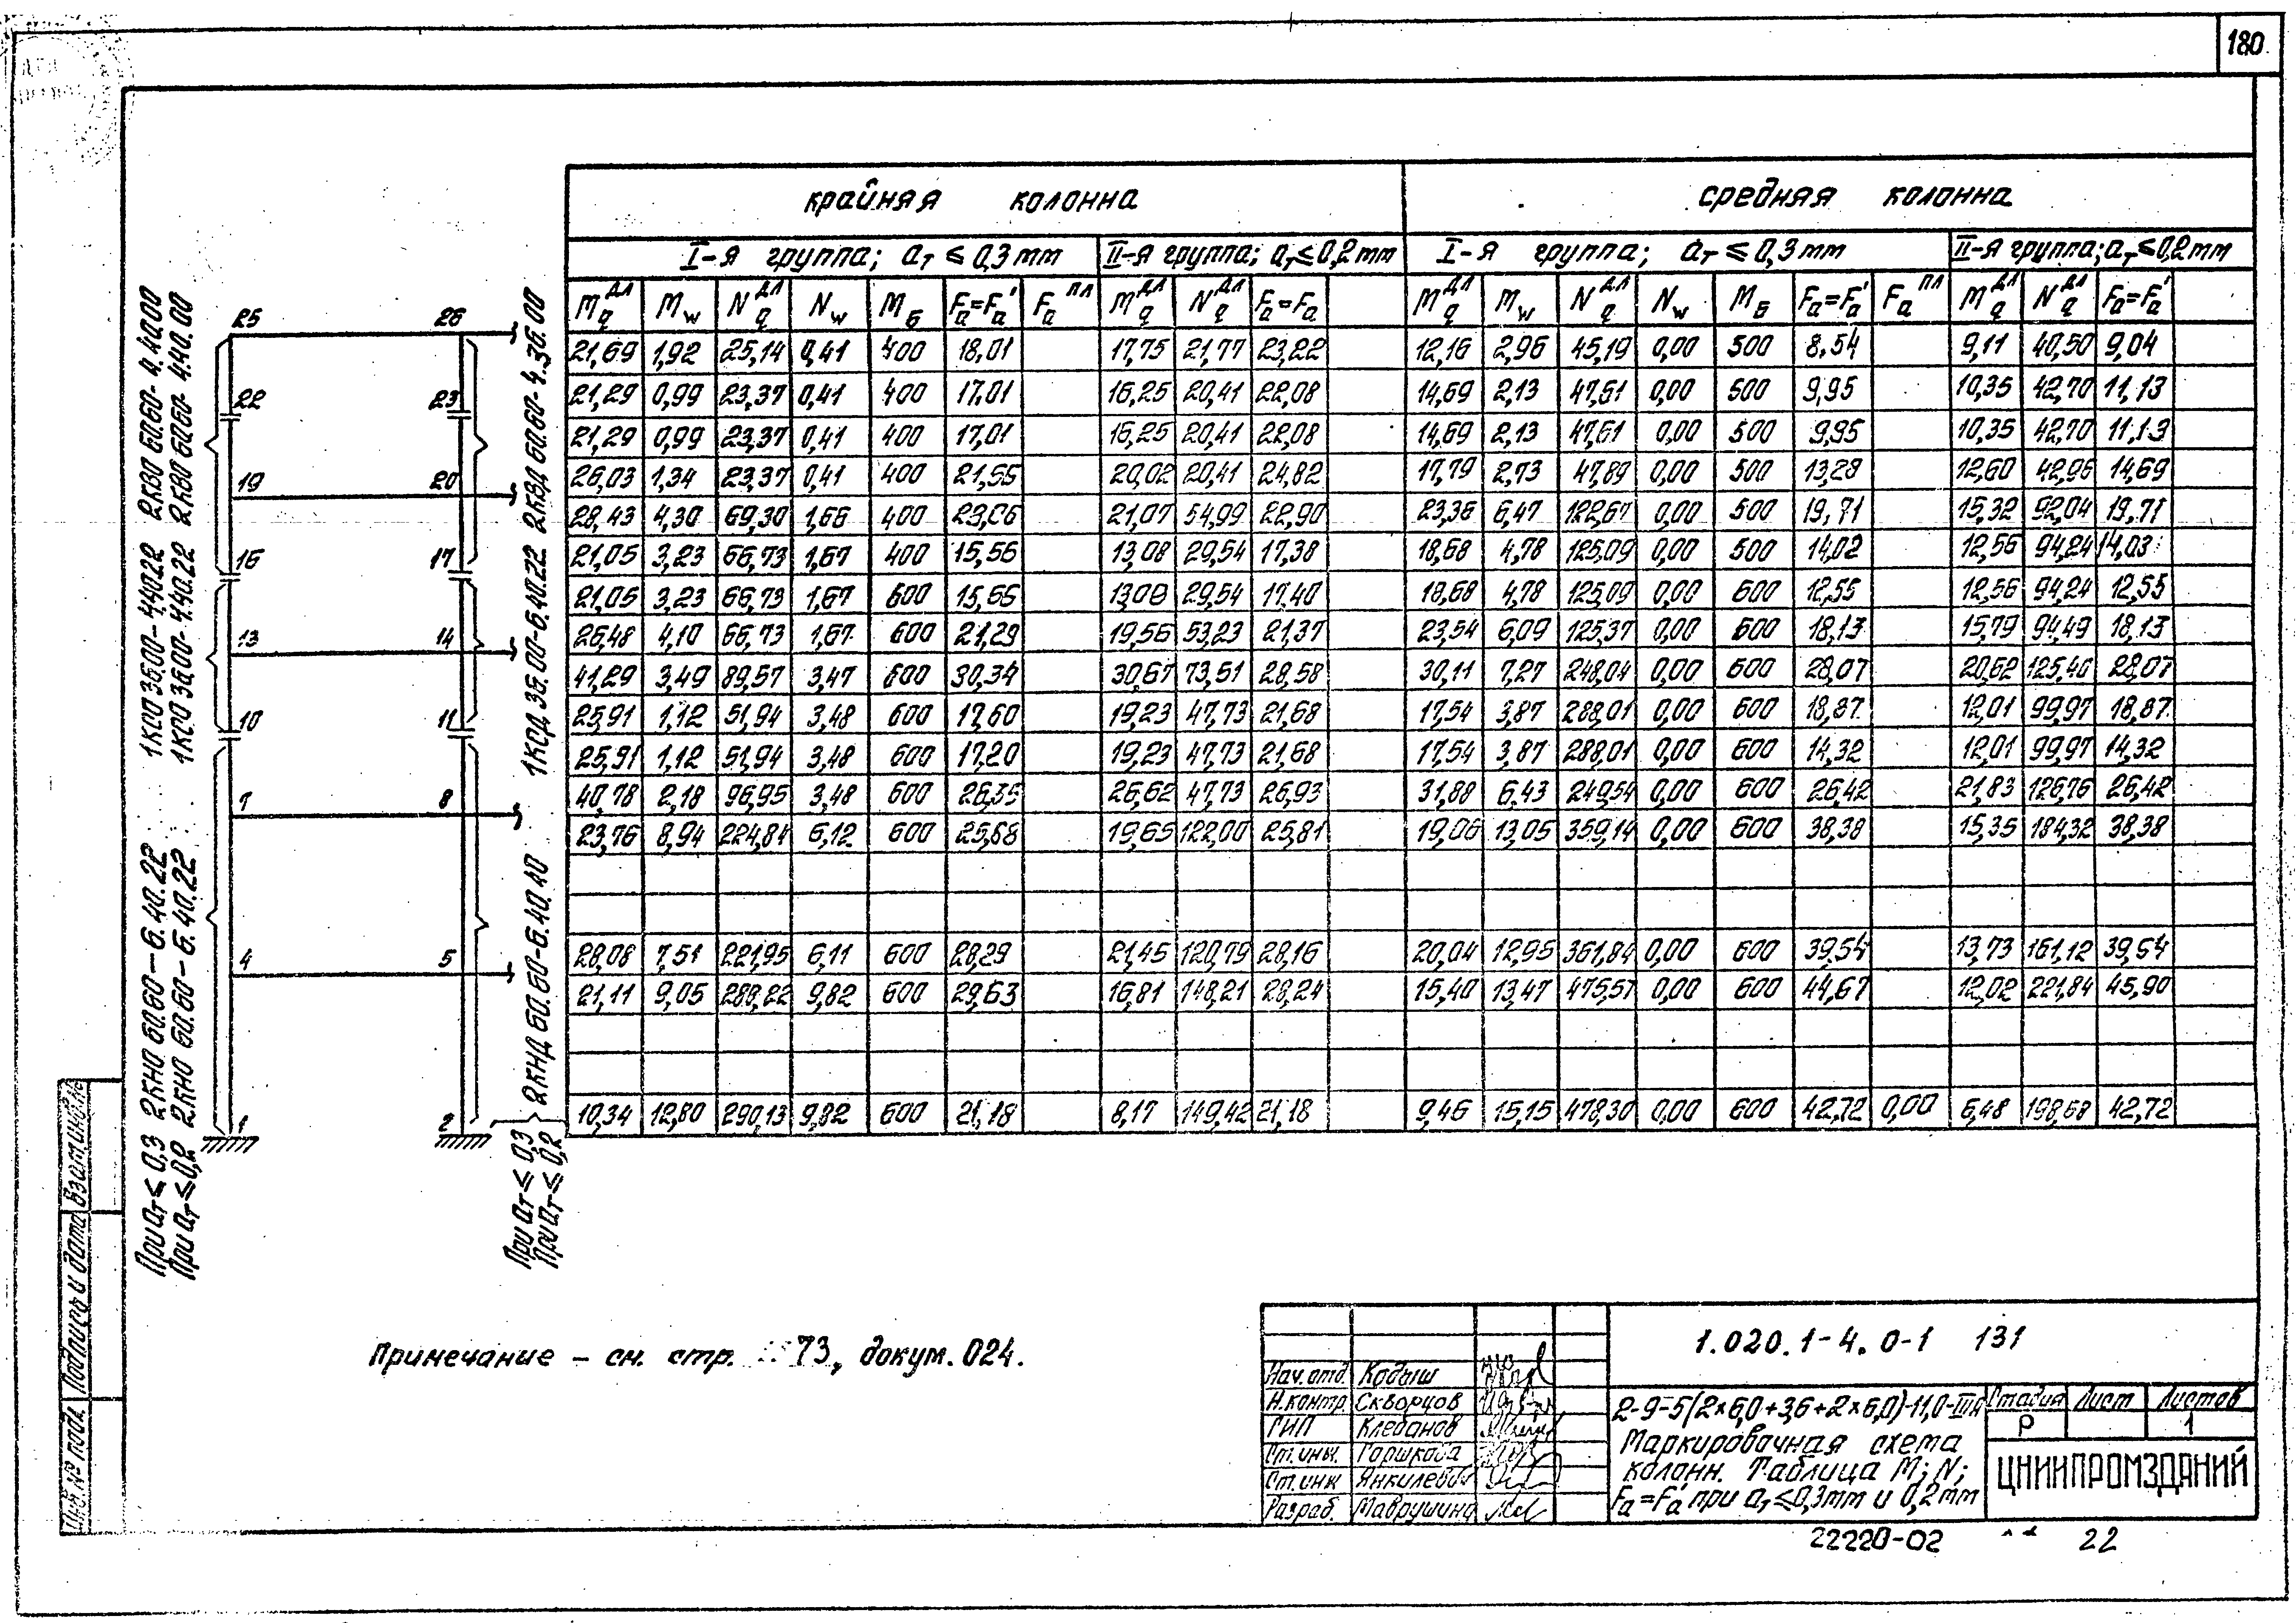 180
крайняя колонна
средняя колонна
I-я группа; aт ≤ 0,3 mm
II-я группа; aт ≤ 0,2 mm
I-я группа; aт ≤ 0,3 mm
II-я группа; aт ≤ 0,2 mm
Mq^дл Mw Nq^дл Nw MБ Fa=Fa' Fa^пл Mq^дл Nq^дл Fa=Fa Mq^дл Mw Nq^дл Nw MБ Fa=Fa' Fa^пл Mq^дл Nq^дл Fa=Fa'
21,69 1,92 25,14 0,41 400 18,01 17,75 21,77 23,22 12,16 2,96 45,19 0,00 500 8,54 9,11 40,50 9,04
21,29 0,99 23,37 0,41 400 17,01 16,25 20,41 22,08 14,69 2,13 47,61 0,00 500 9,95 10,35 42,70 11,13
21,29 0,99 23,37 0,41 400 17,01 16,25 20,41 22,08 14,69 2,13 47,61 0,00 500 9,95 10,35 42,70 11,13
26,03 1,34 23,37 0,41 400 21,55 20,02 20,41 24,82 17,79 2,73 47,89 0,00 500 13,28 12,60 42,96 14,69
28,43 4,30 69,30 1,66 400 23,06 21,07 54,99 22,90 23,36 6,47 122,67 0,00 500 19,71 15,32 92,04 19,71
21,05 3,23 66,73 1,67 400 15,56 13,08 29,54 17,38 18,68 4,78 125,09 0,00 500 14,02 12,56 94,24 14,03
21,05 3,23 66,73 1,67 600 15,66 13,08 29,54 17,40 18,68 4,78 125,09 0,00 600 12,55 12,56 94,24 12,55
26,48 4,10 66,73 1,67 600 21,29 19,56 53,23 21,37 23,54 6,09 125,37 0,00 600 18,13 15,79 94,49 18,13
41,29 3,49 89,57 3,47 600 30,34 30,67 73,51 28,58 30,11 7,27 248,04 0,00 600 28,07 20,62 125,40 28,07
25,91 1,12 51,94 3,48 600 17,60 19,23 47,73 21,68 17,54 3,87 288,01 0,00 600 18,87 12,01 99,97 18,87
25,91 1,12 51,94 3,48 600 17,20 19,23 47,73 21,68 17,54 3,87 288,01 0,00 600 14,32 12,01 99,97 14,32
40,78 2,18 96,95 3,48 600 26,35 26,62 47,73 26,93 31,88 6,43 249,54 0,00 600 26,42 21,83 126,76 26,42
23,76 8,94 224,84 6,12 600 25,68 19,65 122,00 25,81 19,06 13,05 359,14 0,00 600 38,38 15,35 184,32 38,38
28,08 7,51 221,95 6,11 600 28,29 21,45 120,79 28,16 20,04 12,95 361,84 0,00 600 39,54 13,73 161,12 39,54
21,11 9,05 288,22 9,82 600 29,63 16,81 148,21 28,24 15,40 13,47 475,57 0,00 600 44,67 12,02 221,84 45,90
10,34 12,80 290,13 9,82 600 21,18 8,17 149,42 21,18 9,46 15,15 478,30 0,00 600 42,72 0,00 6,48 198,68 42,72
25 26
22 23
19 20
16 17
13 14
10 11
7 8
4 5
1 2
При aт ≤ 0,3 2КНО 60.60-6.40.22 1КСО 36.00-4.40.22 2КВО 60.60-4.40.00
При aт ≤ 0,2 2КНО 60.60-6.40.22 1КСО 36.00-4.40.22 2КВО 60.60-4.40.00
При aт ≤ 0,3
При aт ≤ 0,2
2КНД 60.60-6.40.40 1КСД 36.00-6.40.22 2КВД 60.60-4.36.00
Примечание – см. стр. 73, докум. 024.
1.020.1-4. 0-1 131
Нач. отд Кодыш
Н.контр Скворцов
ГИП Клебанов
Ст. инж. Горшкова
Ст. инж Янкилевич
Разраб. Маврушина
2-9-5(2×6,0+3,6+2×6,0)-11,0-IIIA
Маркировочная схема
колонн. Таблица M; N;
Fa=Fa' при aт ≤ 0,3mm и 0,2mm
Стадия Лист Листов
Р 1
ЦНИИПРОМЗДАНИЙ
22220-02 22
Инв. № подл. Подпись и дата Взам.инв.№